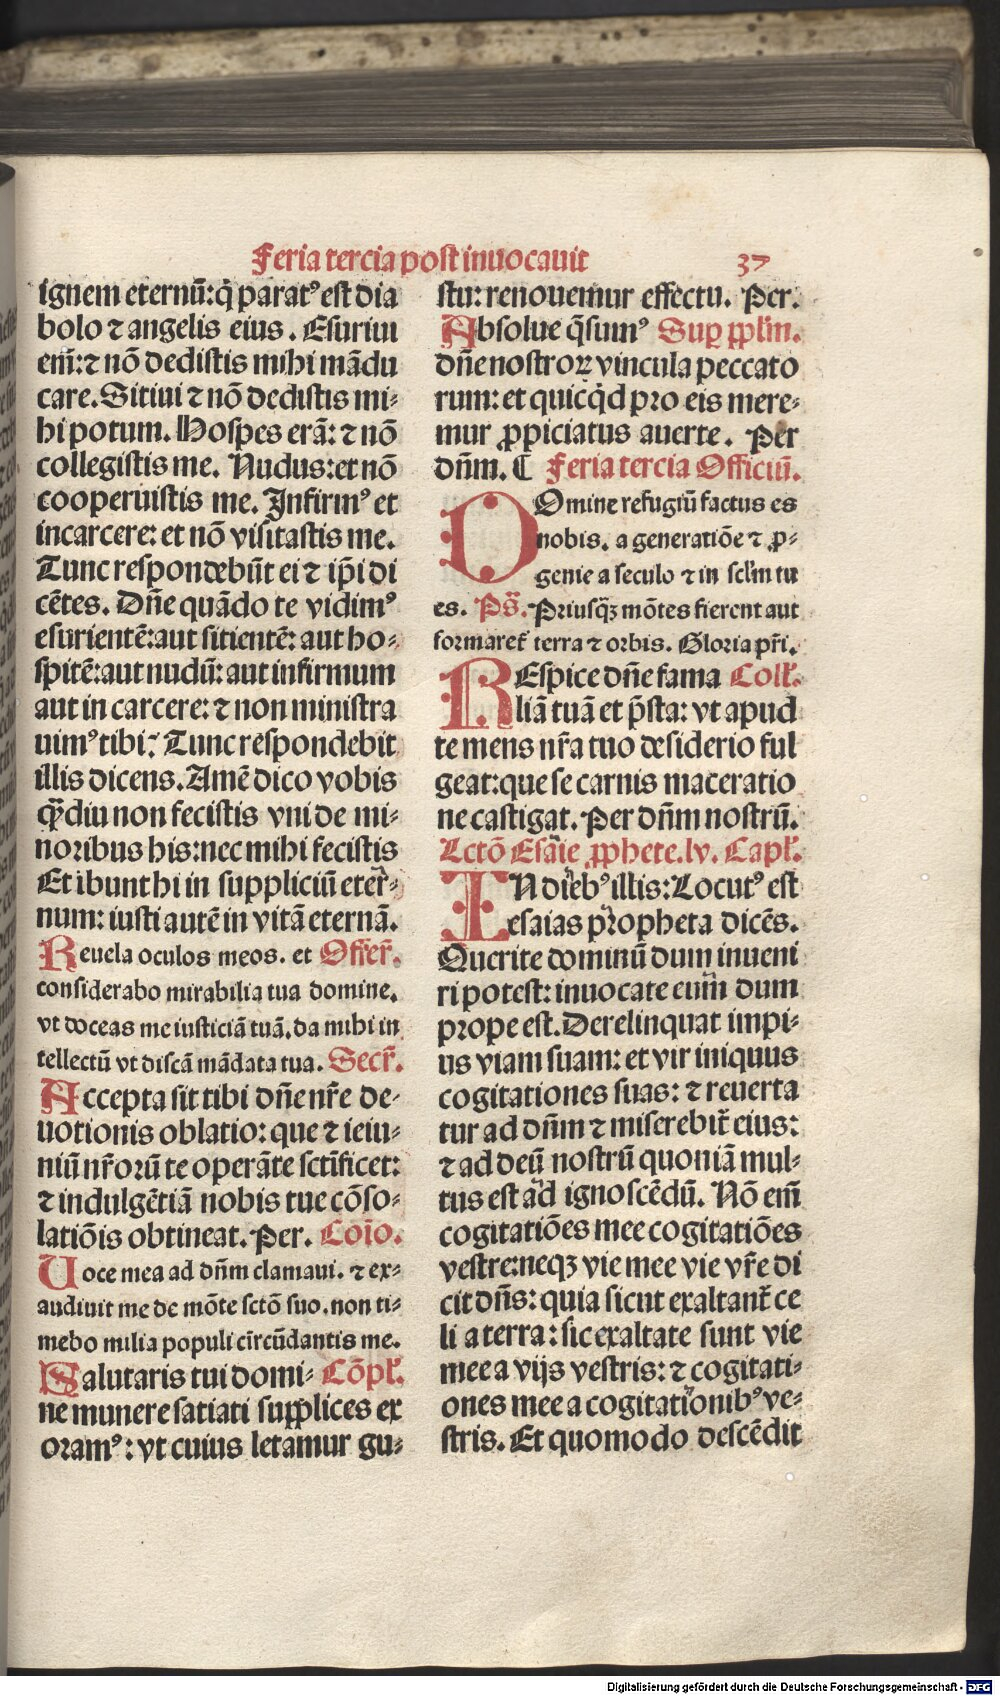 Feria tercia post inuocauit 37
ignem eternū: q̄ parat⁹ est dia
bolo ⁊ angelis eius. Esuriui
em̄: ⁊ nō dedistis mihi mādu
care. Sitiui ⁊ nō dedistis mi-
hi potum. Hospes erā: ⁊ nō
collegistis me. Nudus: et nō
cooperuistis me. Infirm⁹ et
in carcere: et nō visitastis me.
Tunc respondebūt ei ⁊ ip̄i di
cētes. Dn̄e quādo te vidim⁹
esurientē: aut sitientē: aut ho-
spitē: aut nudū: aut infirmum
aut in carcere: ⁊ non ministra
uim⁹ tibi: Tunc respondebit
illis dicens. Amē dico vobis
q̄diu non fecistis vni de mi-
noribus his: nec mihi fecistis
Et ibunt hi in suppliciū eter-
num: iusti autē in vitā eternā.
Reuela oculos meos. et Offer̄.
considerabo mirabilia tua domine.
vt doceas me iusticiā tuā. da mihi in
tellectū vt discā mādata tua. Secr̄.
Accepta sit tibi dn̄e nr̄e de-
uotionis oblatio: que ⁊ ieiu-
niū nr̄orū te operāte sctīficet:
⁊ indulgētiā nobis tue cōso-
latiōis obtineat. Per. Coīo.
Uoce mea ad dn̄m clamaui. ⁊ ex-
audiuit me de mōte sctō suo. non ti-
mebo milia populi circūdantis me.
Salutaris tui domi- Cōpl̄.
ne munere satiati supplices ex
oram⁹: vt cuius letamur gu-
stu: renouemur effectu. Per.
Absolue q̄sum⁹ Suꝑ pplm̄.
dn̄e nostroꝝ vincula peccato
rum: et quicq̄d pro eis mere-
mur ꝓpiciatus auerte. Per
dn̄m. ¶ Feria tercia Officiū.
DOmine refugiū factus es
nobis. a generatiōe ⁊ ꝓ-
genie a seculo ⁊ in sclm̄ tu
es. Ps̄. Priusq̄ꝫ mōtes fierent aut
formaret̄ terra ⁊ orbis. Gloria pr̄i.
REspice dn̄e fama Coll̄.
liā tuā et p̄sta: vt apud
te mens nr̄a tuo desiderio ful
geat: que se carnis maceratio
ne castigat. Per dn̄m nostrū.
Lctō Esaie ꝓphete. lv. Capl̄.
IN dieb⁹ illis: Locut⁹ est
esaias propheta dicēs.
Querite dominū dum inueni
ri potest: inuocate eum dum
prope est. Derelinquat impi-
us viam suam: et vir iniquus
cogitationes suas: ⁊ reuerta
tur ad dn̄m ⁊ miserebit̄ eius:
⁊ ad deū nostrū quoniā mul-
tus est ad ignoscēdū. Nō em̄
cogitatiōes mee cogitatiōes
vestre: neqꝫ vie mee vie vr̄e di
cit dn̄s: quia sicut exaltant̄ ce
li a terra: sic exaltate sunt vie
mee a vijs vestris: ⁊ cogitati-
ones mee a cogitationib⁹ ve-
stris. Et quomodo descēdit
Digitalisierung gefördert durch die Deutsche Forschungsgemeinschaft - DFG